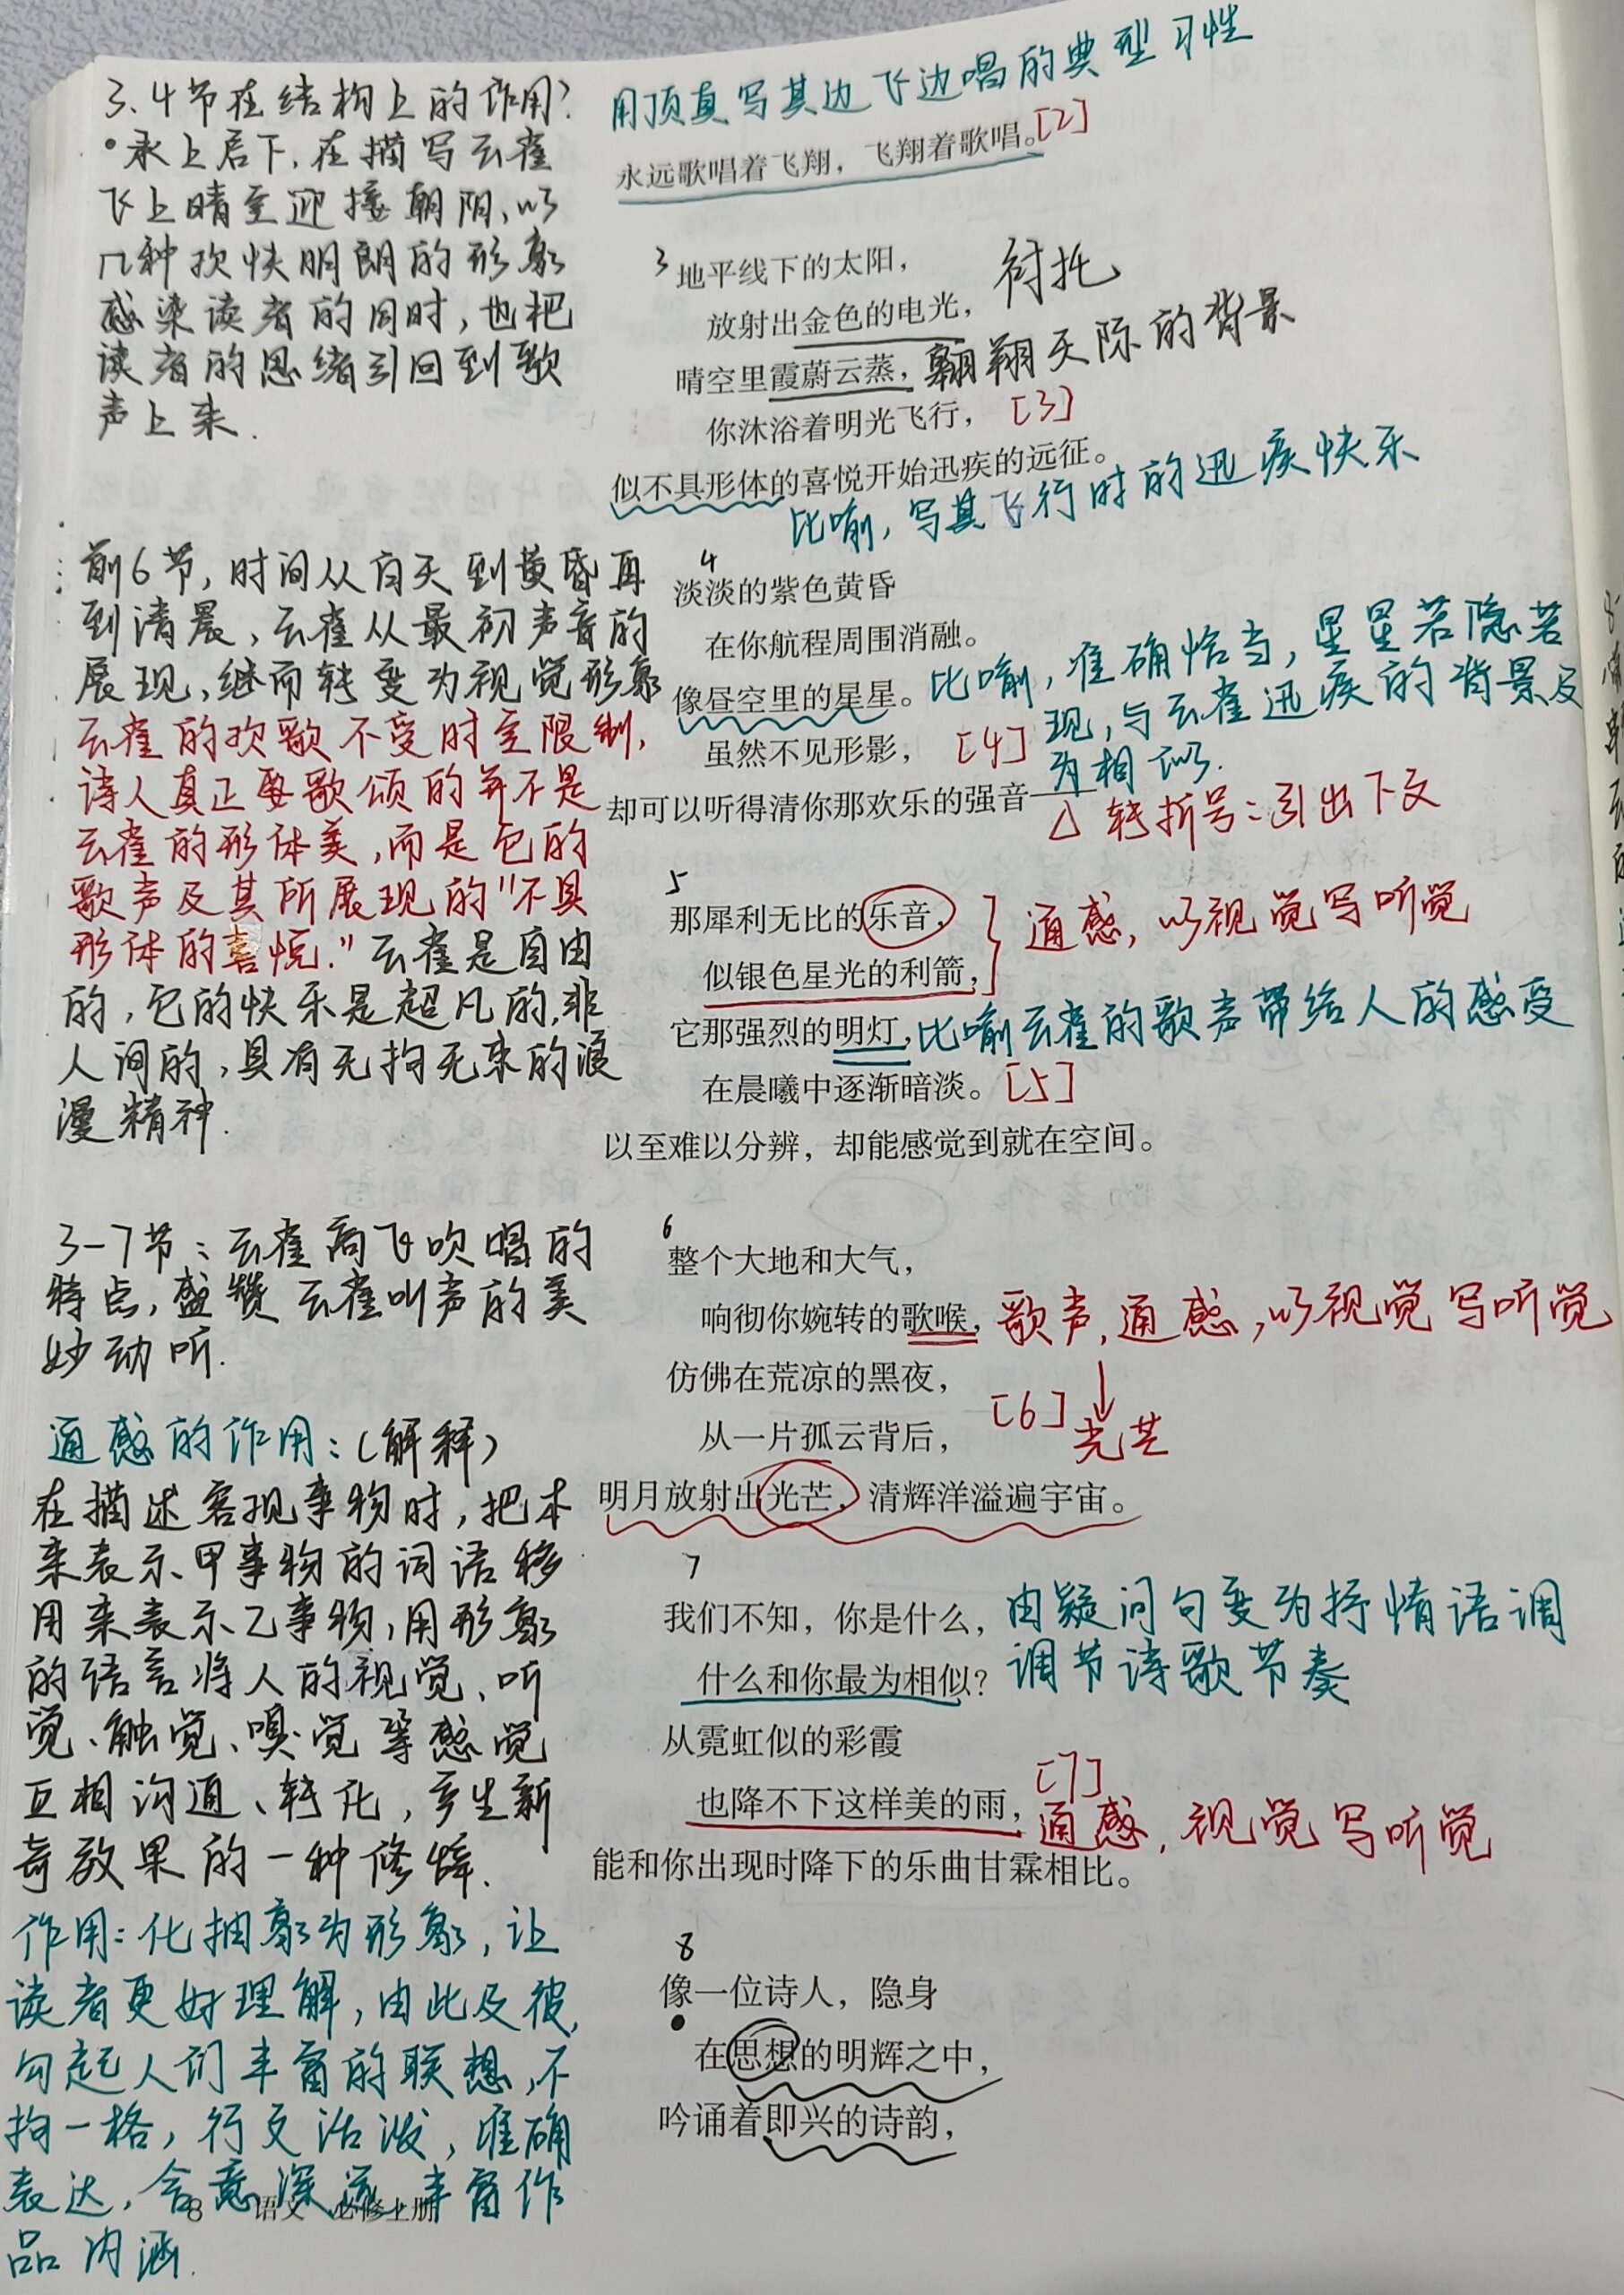 3.4节在结构上的作用?
•承上启下,在描写云雀
飞上晴空迎接朝阳,以
几种欢快明朗的形象
感染读者的同时,也把
读者的思绪引回到歌
声上来.
前6节,时间从白天到黄昏再
到清晨,云雀从最初声音的
展现,继而转变为视觉形象
云雀的欢歌不受时空限制,
诗人真正要歌颂的并不是
云雀的形体美,而是它的
歌声及其所展现的"不具
形体的喜悦."云雀是自由
的,它的快乐是超凡的,非
人间的,具有无拘无束的浪
漫精神.
3-7节:云雀高飞吹唱的
特点,盛赞云雀叫声的美
妙动听.
通感的作用:(解释)
在描述客观事物时,把本
来表示甲事物的词语移
用来表示乙事物,用形象
的语言将人的视觉、听
觉、触觉、嗅觉等感觉
互相沟通、转化,产生新
奇效果的一种修辞.
作用:化抽象为形象,让
读者更好理解,由此及彼,
勾起人们丰富的联想,不
拘一格,行文活泼,准确
表达,含意深远,丰富作
品内涵.
用顶真写其边飞边唱的典型习性
永远歌唱着飞翔，飞翔着歌唱。[2]
3
地平线下的太阳，
放射出金色的电光，衬托
晴空里霞蔚云蒸，翱翔天际的背景
你沐浴着明光飞行，[3]
似不具形体的喜悦开始迅疾的远征。
比喻,写其飞行时的迅疾快乐
4
淡淡的紫色黄昏
在你航程周围消融。
像昼空里的星星。比喻,准确恰当,星星若隐若
现,与云雀迅疾的背景及
为相似.
虽然不见形影，[4]
却可以听得清你那欢乐的强音——
△转折号:引出下文
5
那犀利无比的乐音，
似银色星光的利箭，
通感,以视觉写听觉
它那强烈的明灯，比喻云雀的歌声带给人的感受
在晨曦中逐渐暗淡。[5]
以至难以分辨，却能感觉到就在空间。
6
整个大地和大气，
响彻你婉转的歌喉，歌声,通感,以视觉写听觉
仿佛在荒凉的黑夜，
从一片孤云背后，[6]
↓
光芒
明月放射出光芒，清辉洋溢遍宇宙。
7
我们不知，你是什么，由疑问句变为抒情语调
什么和你最为相似？调节诗歌节奏
从霓虹似的彩霞
也降不下这样美的雨，[7]
通感,视觉写听觉
能和你出现时降下的乐曲甘霖相比。
8
像一位诗人，隐身
在思想的明辉之中，
吟诵着即兴的诗韵，
8 语文 必修上册